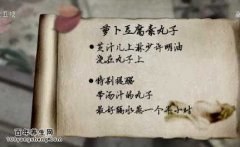 萝卜豆腐素丸子
• 芡汁儿上麻少许明油
浇在丸子上
• 特别提醒
带汤汁的丸子
最好隔水蒸一个半小时
百年养生网
www.bnys